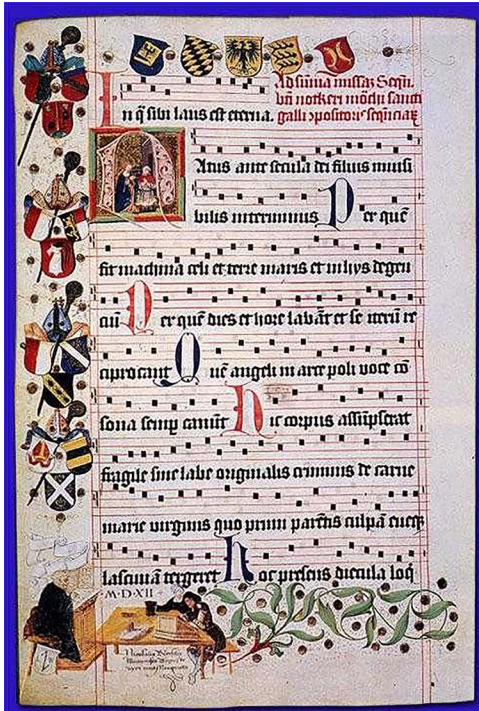 Ad sūmā missaʒ Sequ.
bti notkeri mōchi sancti
In q̄ sibi laus est eterna. galli ꝯpositoris sequēciaʒ
Natus ante secula dei filius inuisi
bilis interminus Per quē
fit machina celi et terre maris et in hys degen
ciū Per quē dies et hore labāt et se iterū re
ciprocant Quē angeli in arce poli voce cō
sona semp canūt Hic corpus assūpserat
fragile sine labe originalis criminis de carne
marie virginis quo primi parētis culpā eueqʒ
lasciuiā tergeret Hoc presens diecula loq̄
·M·D·XII
Nicolaus